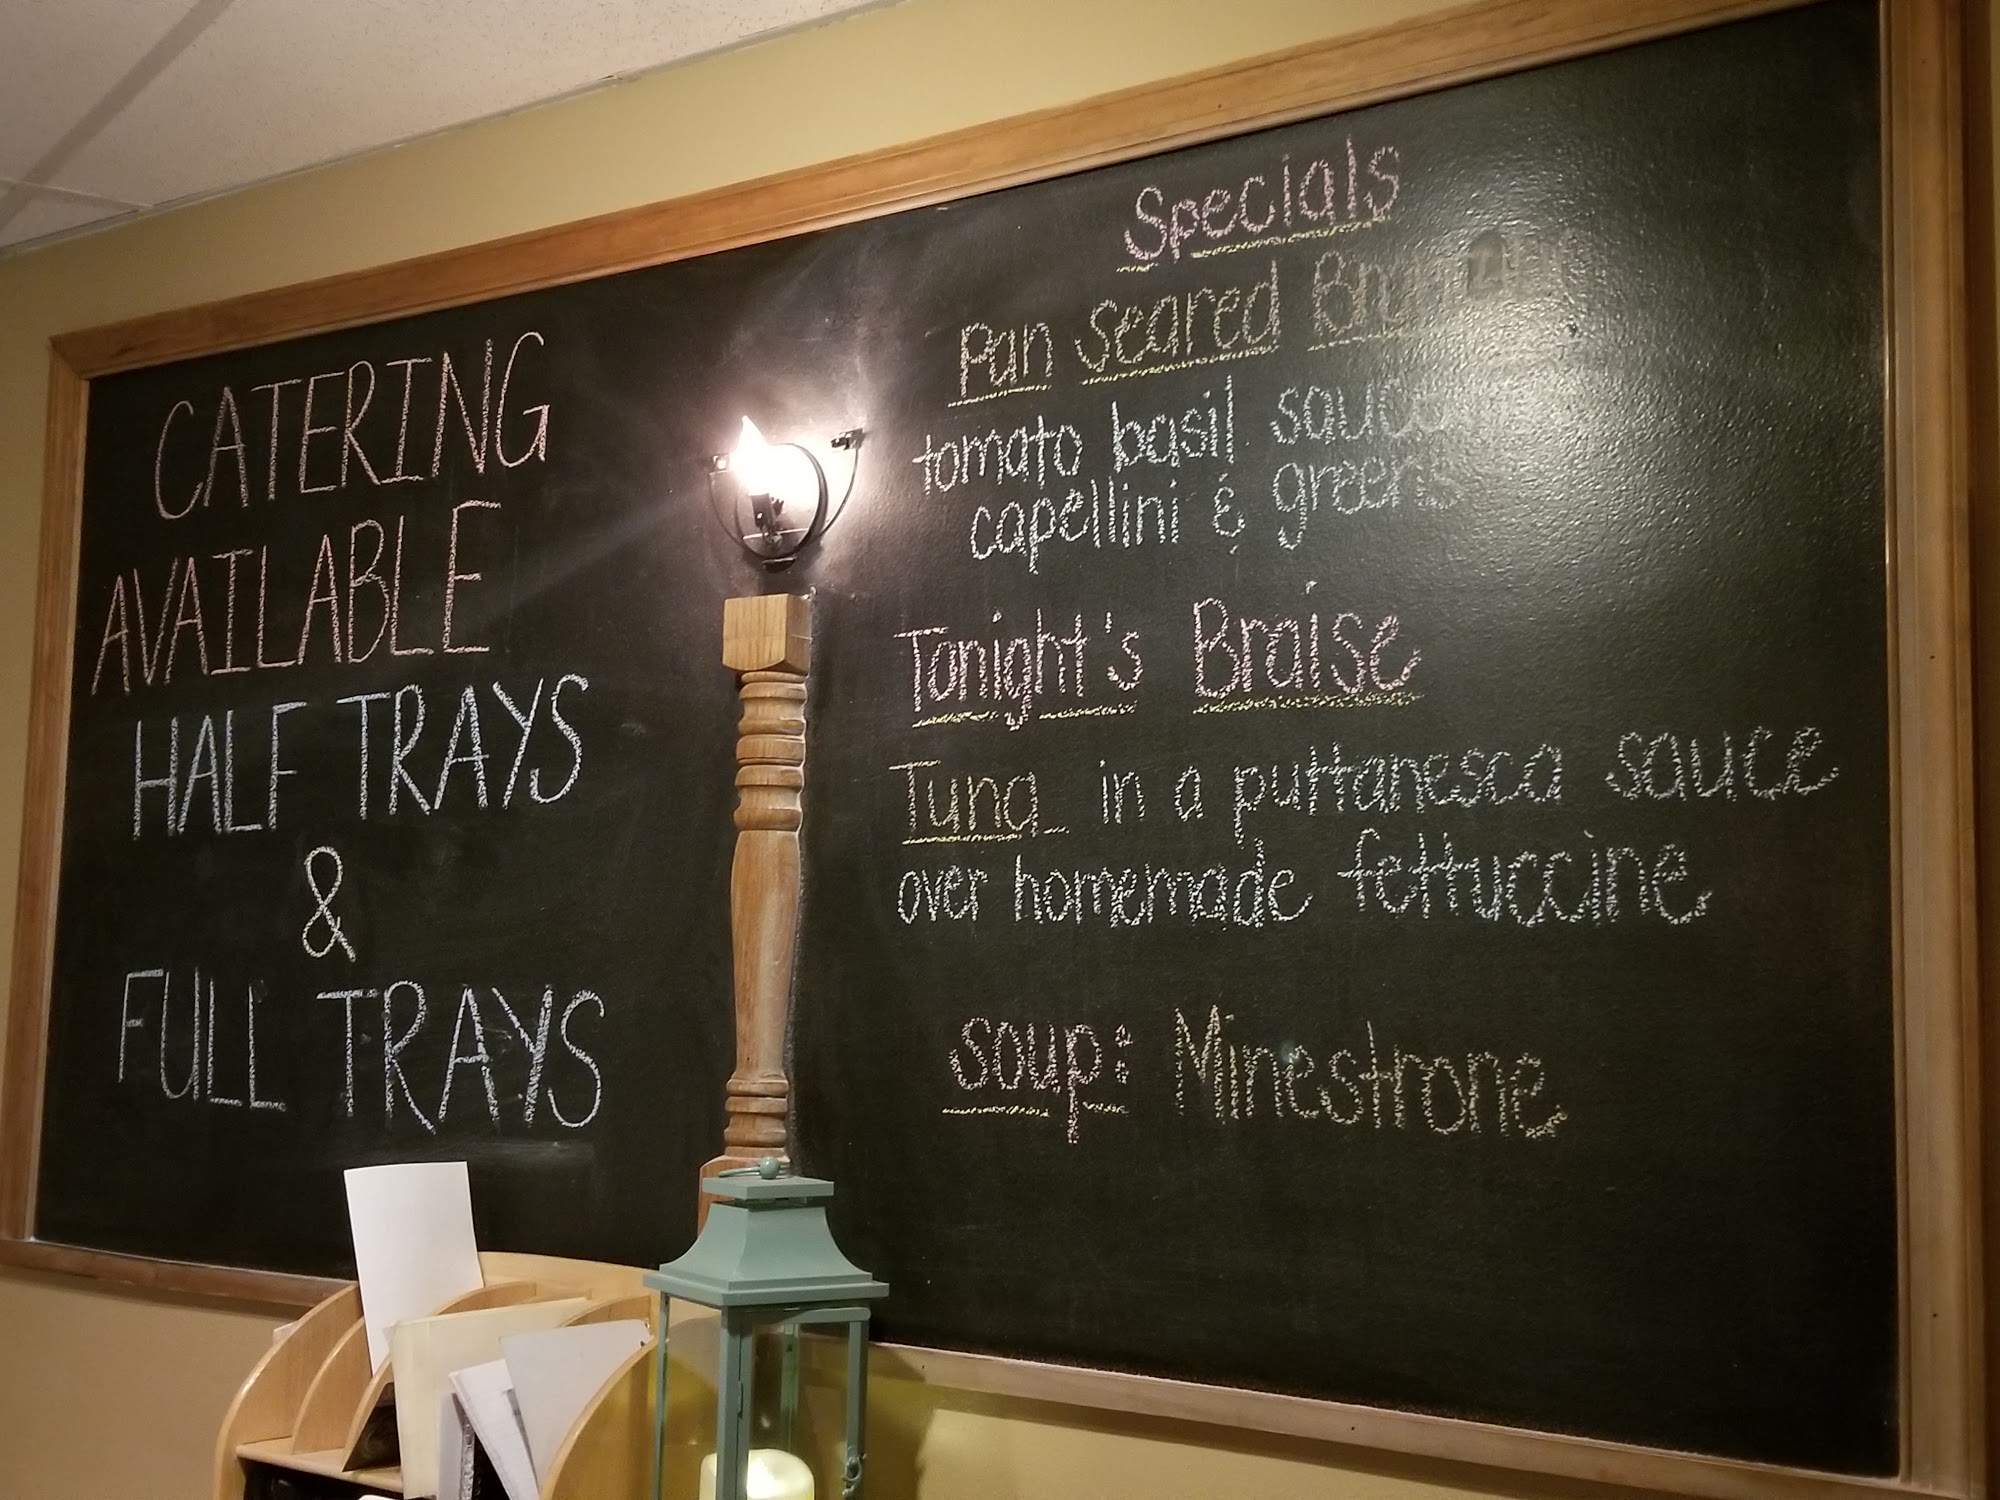 CATERING
AVAILABLE
HALF TRAYS
&
FULL TRAYS
Specials
Pan Seared
tomato basil sauce
capellini & greens
Tonight's Braise
Tuna in a puttanesca sauce
over homemade fettuccine
soup: Minestrone